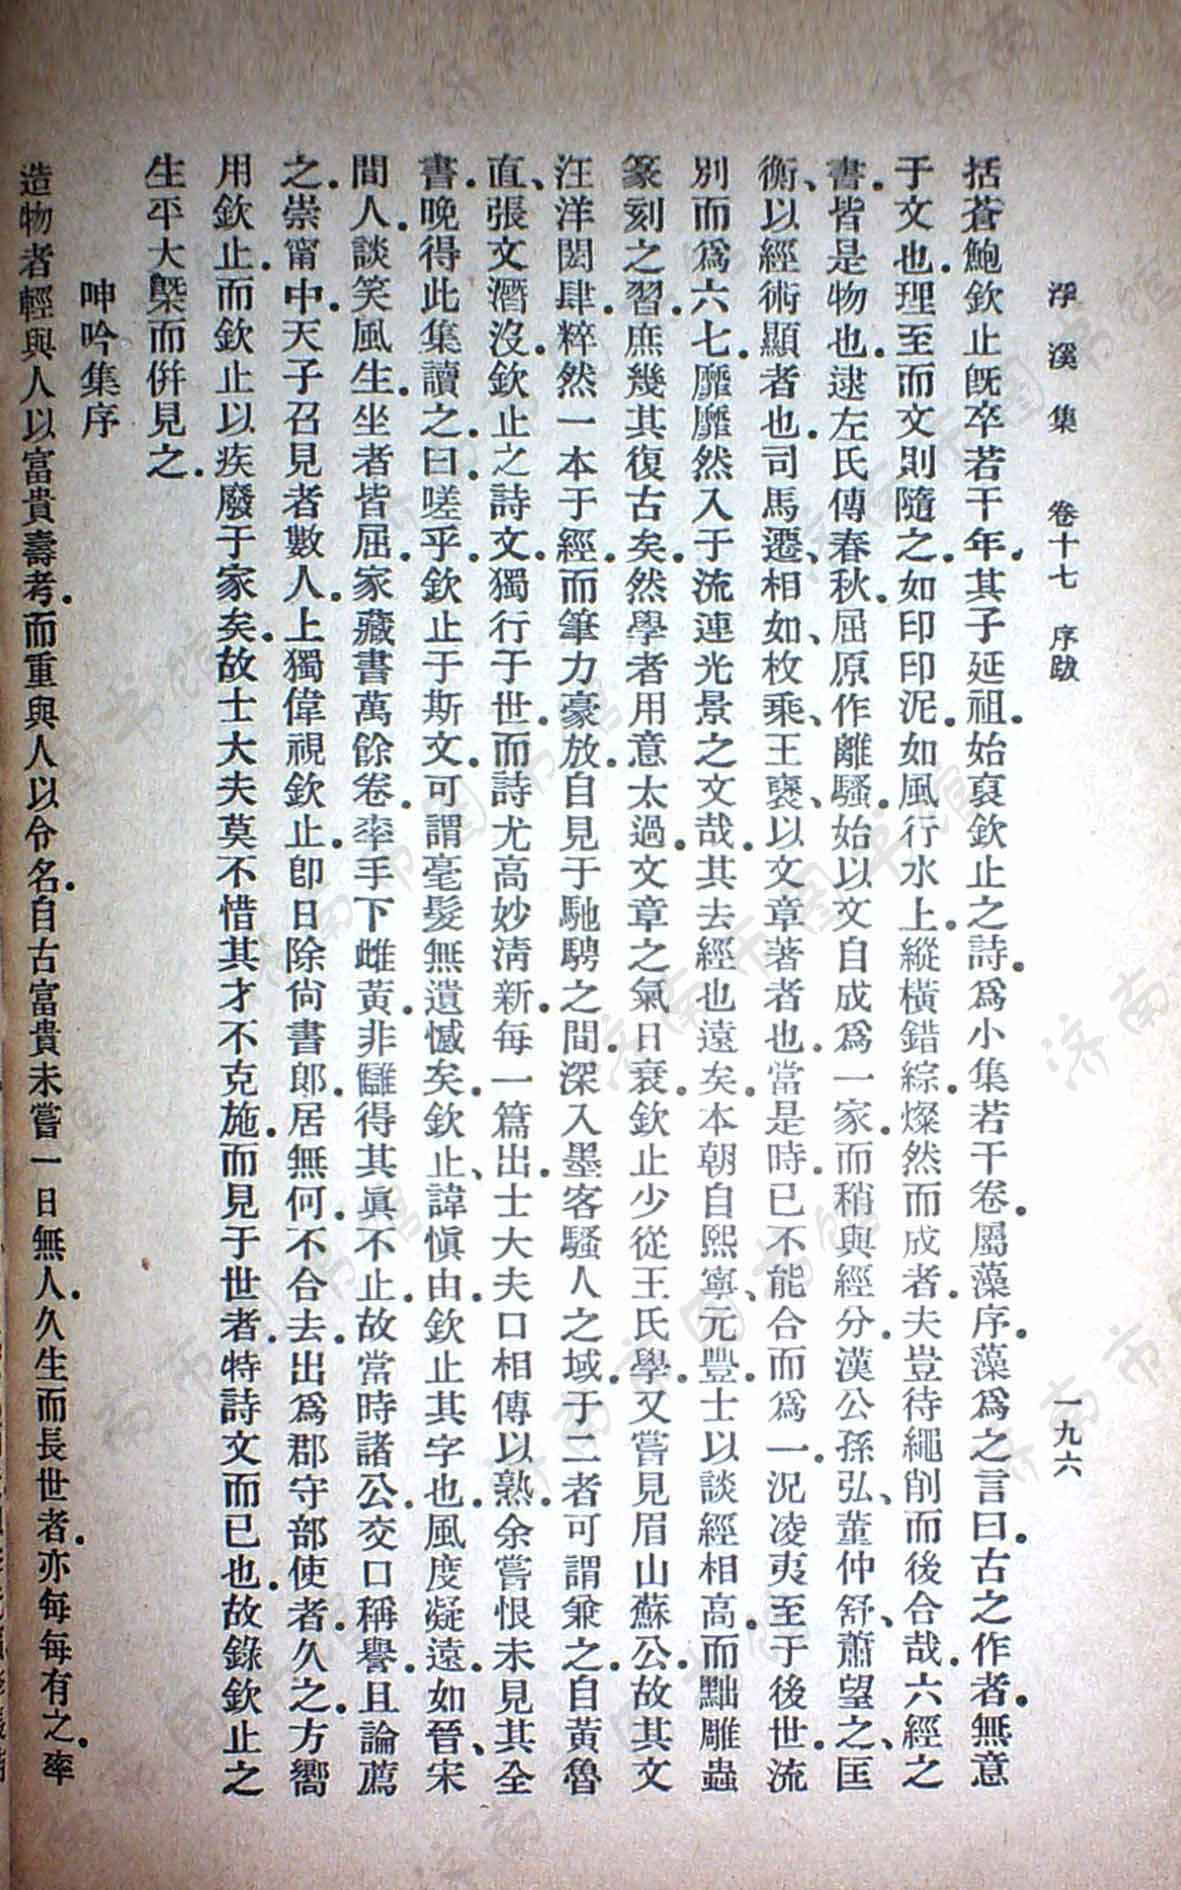 浮溪集　卷十七　序跋　一九六
括蒼鮑欽止旣卒若干年。其子延祖。始裒欽止之詩。爲小集若干卷。屬藻序。藻爲之言曰。古之作者。無意
于文也。理至而文則隨之。如印印泥。如風行水上。縱橫錯綜。燦然而成者。夫豈待繩削而後合哉。六經之
書。皆是物也。逮左氏傳春秋。屈原作離騷。始以文自成爲一家。而稍與經分。漢公孫弘、董仲舒、蕭望之、匡
衡、以經術顯者也。司馬遷、相如、枚乘、王褒、以文章著者也。當是時。已不能合而爲一。況凌夷至于後世。流
別而爲六七。靡靡然入于流連光景之文哉。其去經也遠矣。本朝自熙寧、元豐。士以談經相高。而黜雕蟲
篆刻之習。庶幾其復古矣。然學者用意太過。文章之氣日衰。欽止少從王氏學。又嘗見眉山蘇公。故其文
汪洋閎肆。粹然一本于經。而筆力豪放。自見于馳騁之間。深入墨客騷人之域。于二者可謂兼之。自黃魯
直、張文潛沒。欽止之詩文。獨行于世。而詩尤高妙淸新。每一篇出。士大夫口相傳以熟。余嘗恨未見其全
書。晚得此集讀之。曰。嗟乎。欽止于斯文。可謂毫髮無遺憾矣。欽止、諱愼由。欽止其字也。風度凝遠。如晉、宋
間人。談笑風生。坐者皆屈。家藏書萬餘卷。率手下雌黃。非讎得其眞不止。故當時諸公。交口稱譽。且論薦
之。崇甯中。天子召見者數人。上獨偉視欽止。卽日除尙書郞。居無何。不合去。出爲郡守部使者。久之。方嚮
用欽止。而欽止以疾廢于家矣。故士大夫莫不惜其才不克施。而見于世者。特詩文而已也。故錄欽止之
生平大槩而倂見之。
呻吟集序
造物者輕與人以富貴壽考。而重與人以令名。自古富貴未嘗一日無人。久生而長世者。亦每每有之。率